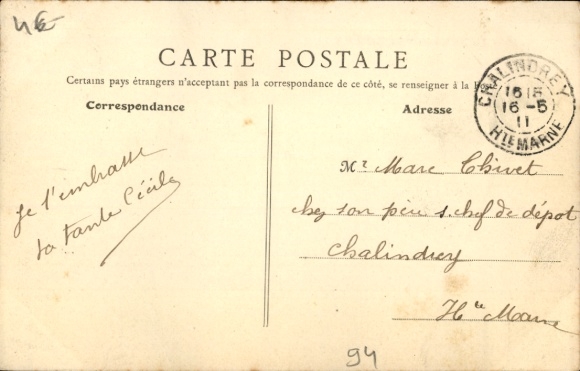 4€
CARTE POSTALE
Certains pays étrangers n'acceptant pas la correspondance de ce côté, se renseigner à la
Correspondance
Adresse
CHALINDREY
1615
16 -5
11
HTE MARNE
Je t'embrasse
ta tante Cécile
Mr Marc Chivet
chez son père s. chef de dépôt
Chalindrey
Hte Marne
94